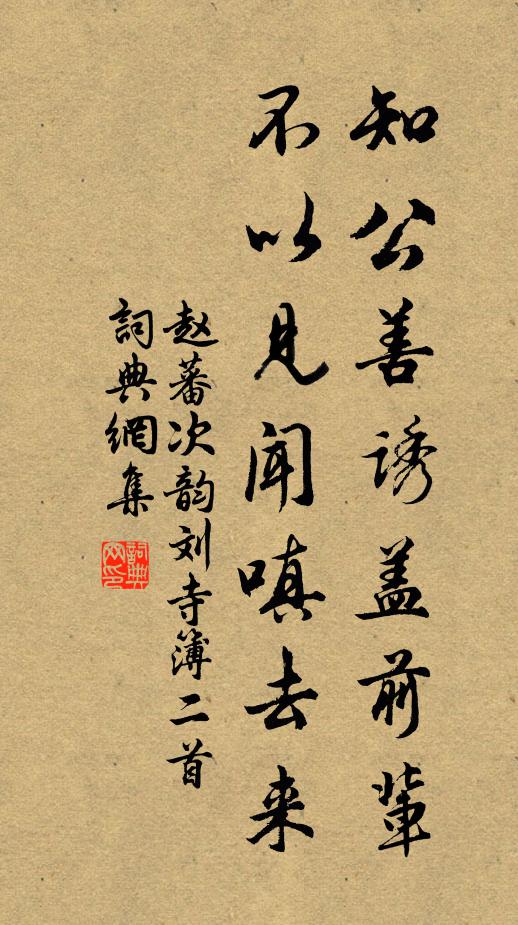 知公善诱盖前輩
不以见闻嗔去来
赵蕃次韵刘寺簿二首
詞典網集
詞典网印